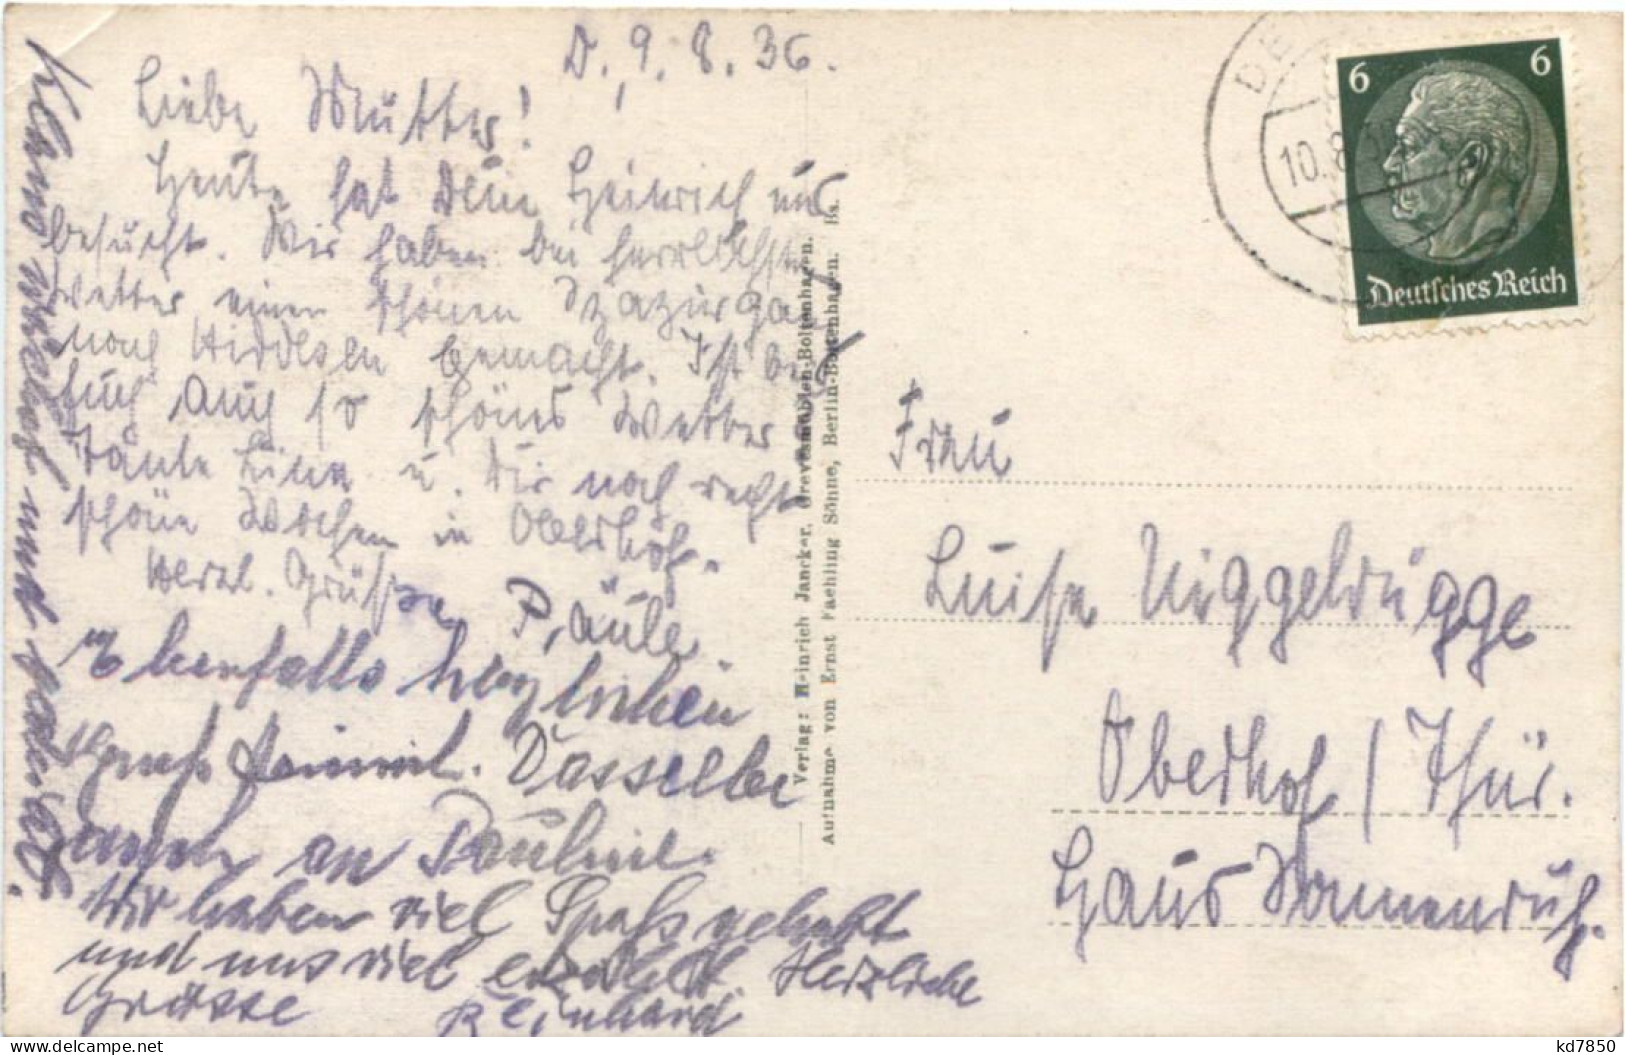 D. 9. 8. 36.
Liebe Mutter!
Heute hat Dein Heinrich uns
besucht. Wir haben bei herrlichstem
Wetter einen schönen Spaziergang
nach Hiddesen gemacht. Ist bei
Euch auch so schönes Wetter
Tante Line u. Dir noch recht
schöne Wochen in Oberhof.
Herzl. Grüsse Paula.
Ebenfalls herzlichen
Gruß Heinrich. Dasselbe
auch an Pauline.
Wir haben viel Spaß gehabt
und uns viel erzählt. Herzliche
Grüsse Reinhard
und
Verlag: Heinrich Jancker, Grevesmühlen-Boltenhagen.
Aufnahme von Ernst Faehling Söhne, Berlin-Boltenhagen. Bs.
DE
10.8.36
6 6
Deutsches Reich
Frau
Luise Niggebrügge
Oberhof / Thür.
Haus Sonnenruh.
kd7850